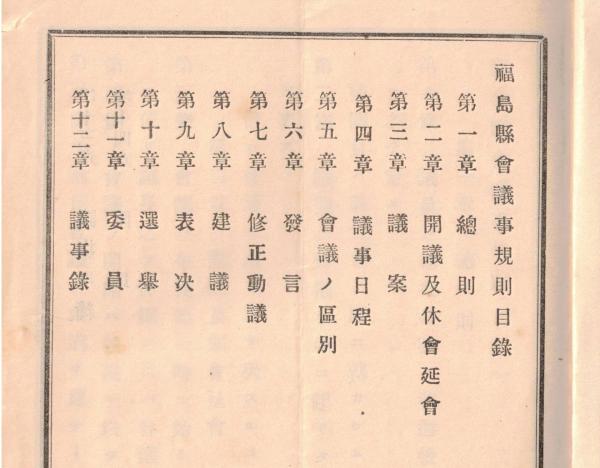 福島縣會議事規則目錄
第一章 總則
第二章 開議及休會延會
第三章 議案
第四章 議事日程
第五章 會議ノ區別
第六章 發言
第七章 修正動議
第八章 建議
第九章 表決
第十章 選舉
第十一章 委員
第十二章 議事錄